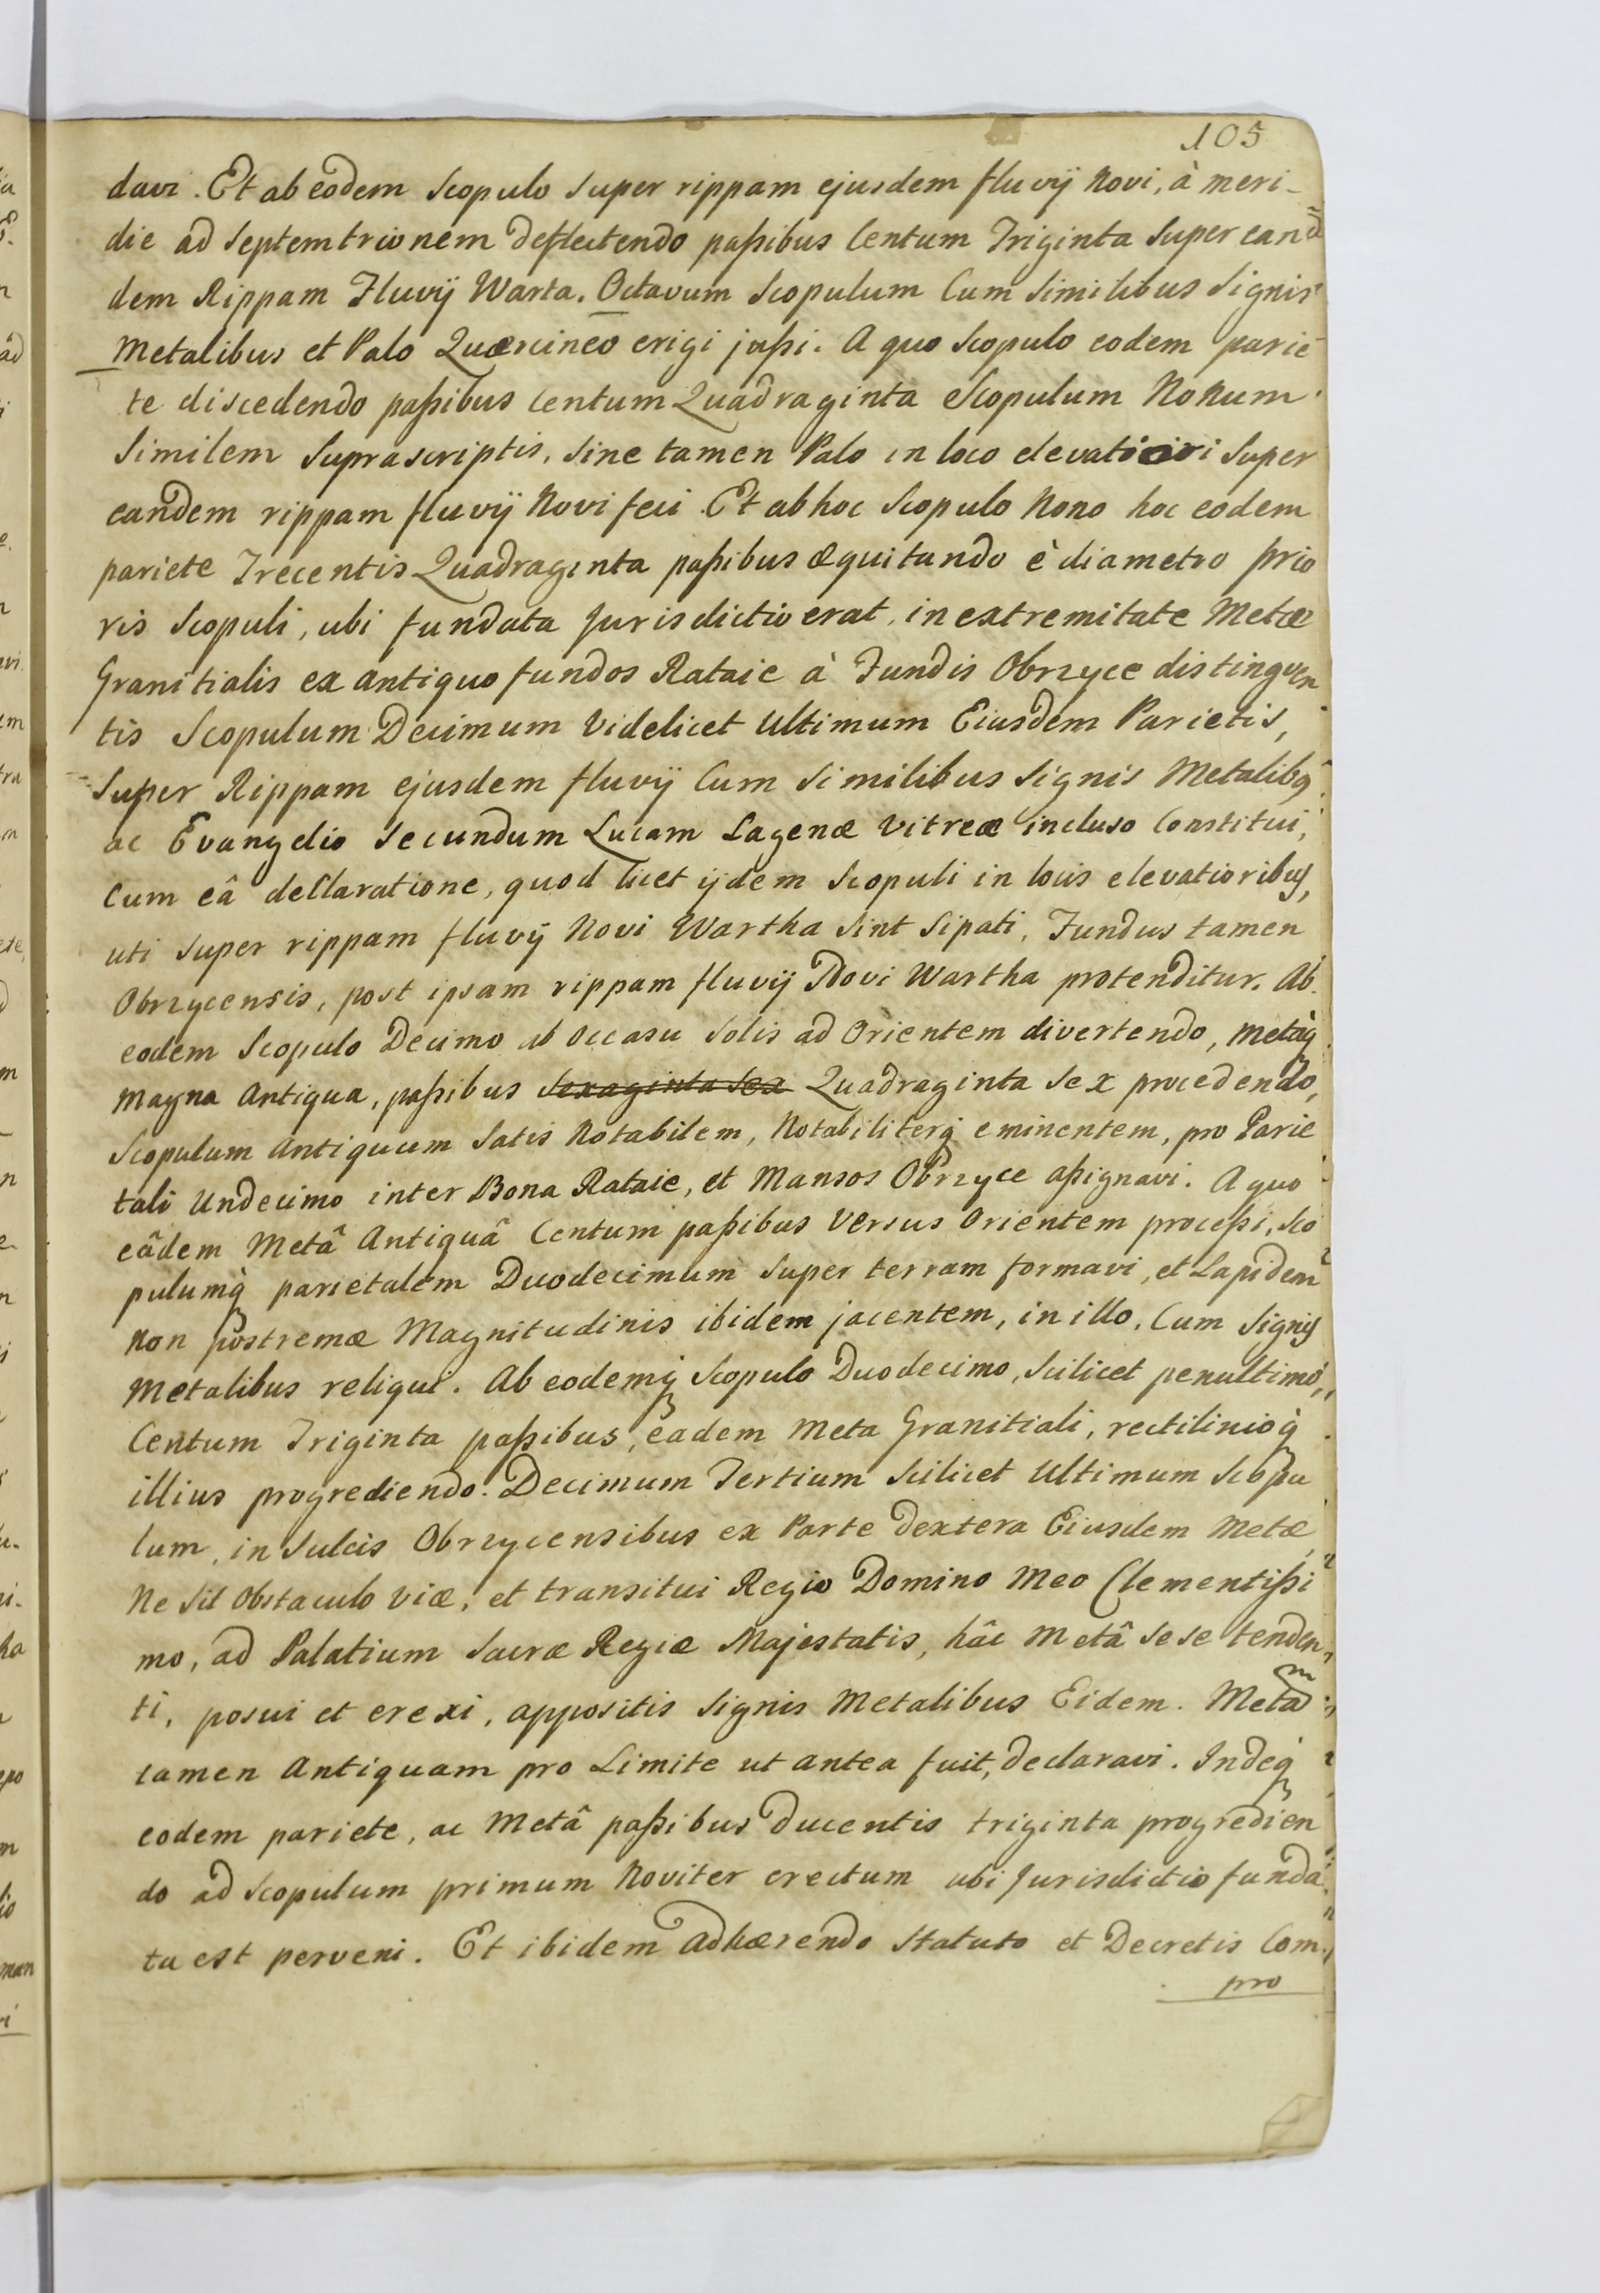 105
davi. Et ab eodem Scopulo super rippam ejusdem fluvÿ Novi, à meri-
die ad Septemtrionem deflectendo paßibus Centum Triginta Super ean
dem Rippam Fluvÿ Warta. Octavum Scopulum Cum Similibus Signis
Metalibus et Palo Quærcineo erigi jußi. A quo Scopulo eodem parie
te discedendo paßibus Centum Quadraginta Scopulum Nonum
Similem Suprascriptis, Sine tamen Palo in loco elevatiori Super
eandem rippam fluvÿ Novi feci. Et ab hoc Scopulo Nono hoc eodem
pariete Trecentis Quadraginta paßibus æquitando è diametro prio
ris Scopuli, ubi fundata Jurisdictio erat, in extremitate Metæ
Granitialis ex antiquo fundos Rataie à Fundis Obrzyce distinguen
tis Scopulum Decimum Videlicet Ultimum Eiusdem Parietis,
Super Rippam ejusdem fluvÿ Cum Similibus Signis Metalibq
ac Evangelio Secundum Lucam Lagenæ Vitreæ incluso Constitui,
Cum eâ declaratione, quod licet ÿdem Scopuli in locis elevatioribus,
uti super rippam fluvÿ Novi Wartha Sint Sipati, Fundus tamen
Obrzycensis, post ipsam rippam fluvÿ Novi Wartha protenditur. Ab
eodem Scopulo Decimo ab Occasu Solis ad Orientem divertendo, metaq̀
Magna Antiqua, paßibus Sexaginta Sex Quadraginta Sex procedendo,
Scopulum Antiquum Satis Notabilem, Notabiliterq̀ eminentem, pro Parie
tali Undecimo inter Bona Rataie, et Mansos Obrzyce aßignavi. A quo
eâdem Metâ Antiquâ Centum paßibus Versus Orientem proceßi, Sco
pulumq̀ parietalem Duodecimum Super terram formavi, et Lapidem
Non postremæ Magnitudinis ibidem jacentem, in illo, Cum Signis
Metalibus reliqui. Ab eodemq̀ Scopulo Duodecimo, Scilicet penultimo,
Centum Triginta paßibus, eadem Meta Granitiali, rectilinioq̀
illius progrediendo. Decimum Tertium Scilicet Ultimum Scopu
lum, in Sulcis Obrzycensibus ex Parte dextera Eiusdem Metæ,
Ne Sit Obstaculo viæ, et transitui Regio Domino Meo Clementißi
mo, ad Palatium Sacræ Regiæ Majestatis, hâc Metâ Sese tenden
ti, posui et erexi, appositis Signis Metalibus Eidem. Metam
tamen Antiquam pro Limite ut antea fuit, declaravi. Indeq̀
eodem pariete, ac Metâ paßibus Ducentis triginta progredien
do ad Scopulum primum Noviter erectum ubi Jurisdictio funda
ta est perveni. Et ibidem adhærendo Statuto et Decretis Com
pro